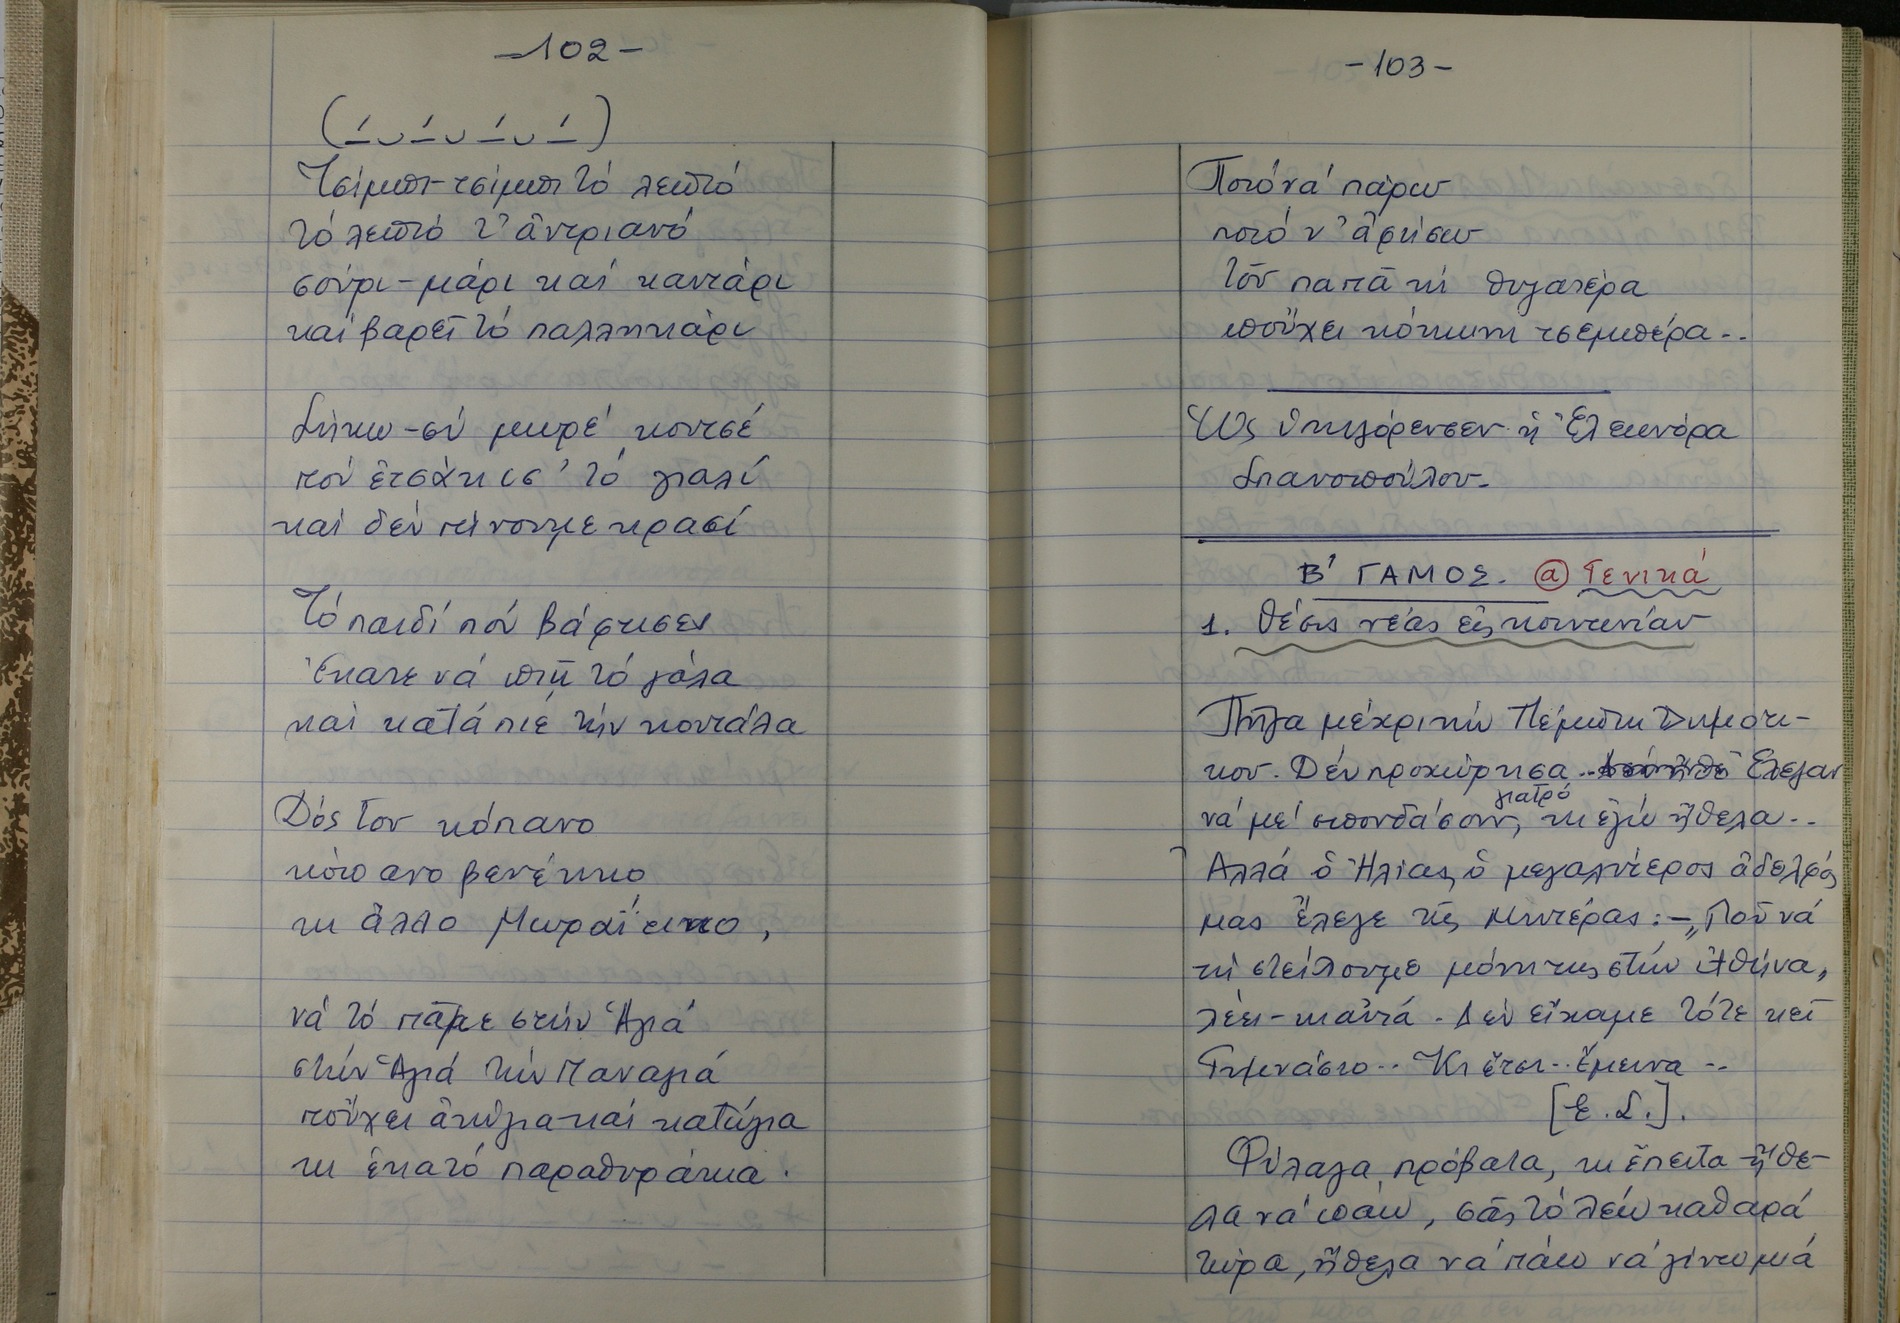 -102-
(-́υ-́υ-́υ-́)
Τσίμπι-τσίμπι τό λεπτό
τό λεπτό τ' ἀντριανό
σούρι-μάρι καί καντάρι
καί βαρεῖ τό παλληκάρι
Σήκω-σύ μωρέ κουτσέ
πού ἐτσάκισ' τό γιαλί
καί δέν πίνουμε κρασί
Τό παιδί πού βάφτισες
ἔκατσε νά πιῆ τό γάλα
καί κατάπιε τήν κουτάλα
Δός του κόπανο
κόπανο βενέτικο
κι ἄλλο Μωραΐτικο,
νά τό πᾶμε στήν Ἁγιά
στήν Ἁγιά τήν Παναγιά
πούχει ἀνώγια καί κατώγια
κι ἑκατό παραθυράκια.
-103-
Ποιό νά πάρω
ποιό ν' ἀφήσω
τοῦ παπᾶ τή θυγατέρα
πούχει κόκκινη τσεμπέρα..
Ὡς ὑπηγόρευσεν ἡ Ἐλεωνόρα
Σπανοπούλου.
Β' ΓΑΜΟΣ. ⓐ Γενικά
1. Θέσις νέας εἰς κοινωνίαν
Πῆγα μέχρι τήν Πέμπτη Δημοτι-
κοῦ. Δέν προχώρησα.. Ἔλεγαν
γιατρό
νά μέ σπουδάσουν, κι ἐγώ ἤθελα..
Ἀλλά ὁ Ἠλίας, ὁ μεγαλύτερος ἀδελφός
μας ἔλεγε τῆς μητέρας:-„Ποῦ νά
τή στείλουμε μόνη της στήν Ἀθήνα,
λέει-κιαὐτά. Δέν εἴχαμε τότε κεῖ
Γυμνάσιο.. Κι ἔτσι.. ἔμεινα..
[Ε.Σ.].
Φύλαγα πρόβατα, κι ἔπειτα ἤθε-
λα νά πάω, σᾶς τό λέω καθαρά
τώρα, ἤθελα νά πάω νά γίνω μιά